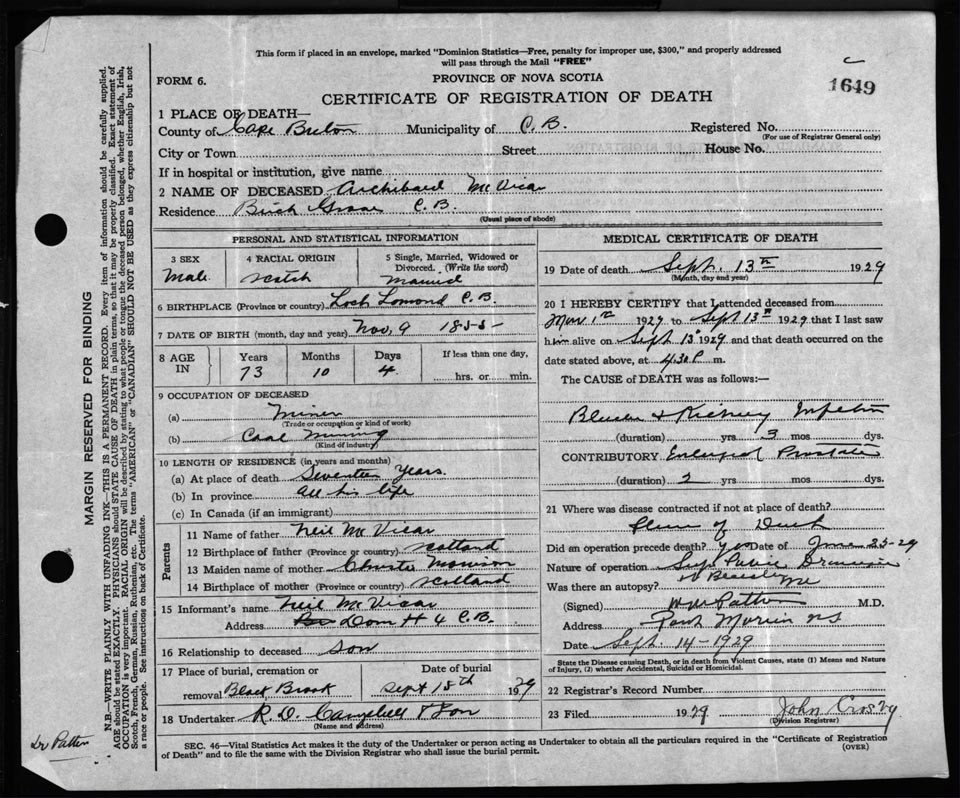 This form if placed in an envelope, marked "Dominion Statistics—Free, penalty for improper use, $300," and properly addressed
will pass through the Mail "FREE"
FORM 6.
PROVINCE OF NOVA SCOTIA
1649
CERTIFICATE OF REGISTRATION OF DEATH
1 PLACE OF DEATH—
County of Cape Breton Municipality of C.B. Registered No.
(For use of Registrar General only)
City or Town Street House No.
If in hospital or institution, give name
2 NAME OF DECEASED Archibald McVicar
Residence Birch Grove C.B.
(Usual place of abode)
PERSONAL AND STATISTICAL INFORMATION
3 SEX 4 RACIAL ORIGIN 5 Single, Married, Widowed or
Divorced. (Write the word)
Male Scotch Married
6 BIRTHPLACE (Province or country) Loch Lomond C.B.
7 DATE OF BIRTH (month, day and year) Nov. 9 1855
8 AGE IN Years Months Days If less than one day,
73 10 4 hrs. or min.
9 OCCUPATION OF DECEASED
(a) Miner
(Trade or occupation or kind of work)
(b) Coal Mining
(Kind of industry)
10 LENGTH OF RESIDENCE (in years and months)
(a) At place of death Seventeen Years.
(b) In province All his life
(c) In Canada (if an immigrant)
Parents
11 Name of father Neil McVicar
12 Birthplace of father (Province or country) Scotland
13 Maiden name of mother Christie Morrison
14 Birthplace of mother (Province or country) Scotland
15 Informant's name Neil McVicar
Address Dom # 4 C.B.
16 Relationship to deceased Son
17 Place of burial, cremation or Date of burial
removal Black Brook Sept 15th 1929
18 Undertaker R.O. Campbell & Son
(Name and address)
MEDICAL CERTIFICATE OF DEATH
19 Date of death Sept. 13th 1929
(Month, day and year)
20 I HEREBY CERTIFY that I attended deceased from
Mar 1st 1929 to Sept 13th 1929 that I last saw
him alive on Sept. 13th 1929 and that death occurred on the
date stated above, at 4.30 P. m.
The CAUSE of DEATH was as follows:—
Bladder & Kidney Infection
(duration) yrs 3 mos dys.
CONTRIBUTORY Enlarged Prostate
(duration) 2 yrs. mos. dys.
21 Where was disease contracted if not at place of death?
Place of Death
Did an operation precede death? yes Date of June 25-29
Nature of operation Supra Pubic Drainage
Was there an autopsy? No
(Signed) Patton M.D.
Address Port Morien N.S.
Date Sept. 14-1929
State the Disease causing Death, or in death from Violent Causes, state (1) Means and Nature
of Injury, (2) whether Accidental, Suicidal or Homicidal.
22 Registrar's Record Number
23 Filed 1929 John Crosby
(Division Registrar)
SEC. 46—Vital Statistics Act makes it the duty of the Undertaker or person acting as Undertaker to obtain all the particulars required in the "Certificate of Registration
of Death" and to file the same with the Division Registrar who shall issue the burial permit.
(OVER)
MARGIN RESERVED FOR BINDING
N.B.—WRITE PLAINLY WITH UNFADING INK—THIS IS A PERMANENT RECORD. Every item of information should be carefully supplied.
AGE should be stated EXACTLY. PHYSICIANS should STATE CAUSE OF DEATH in plain terms, so that it may be properly classified. Exact statement of
OCCUPATION is very important. RACIAL ORIGIN will be described by stating to what people or tongue the deceased person belonged, whether English, Irish,
Scotch, French, German, Russian, Ruthenian, etc. The terms "AMERICAN" or "CANADIAN" SHOULD NOT BE USED as they express citizenship but not
a race or people. See instructions on back of Certificate.
Dr Patton